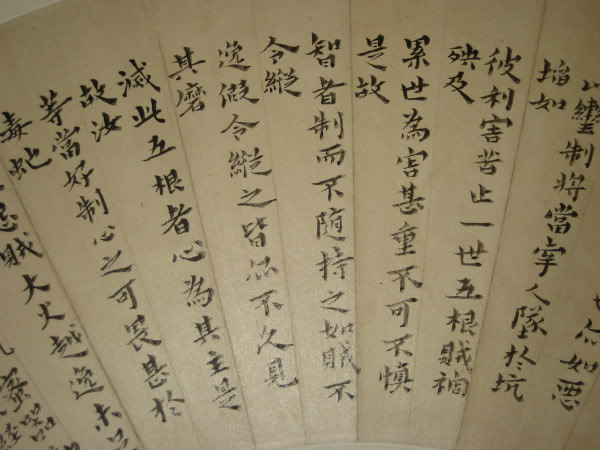 也亦如悪
以轡制將當牽人墜於坑
埳如
彼利害苦止一世五根賊禍
殃及
累世為害甚重不可不慎
是故
智者制而不随持之如賊不
令縱
逸假令縱之皆亦不久見
其磨
滅此五根者心為其主是
故汝
等當好制心之可畏甚於
毒虵
賊大火越逸未足
蜜器